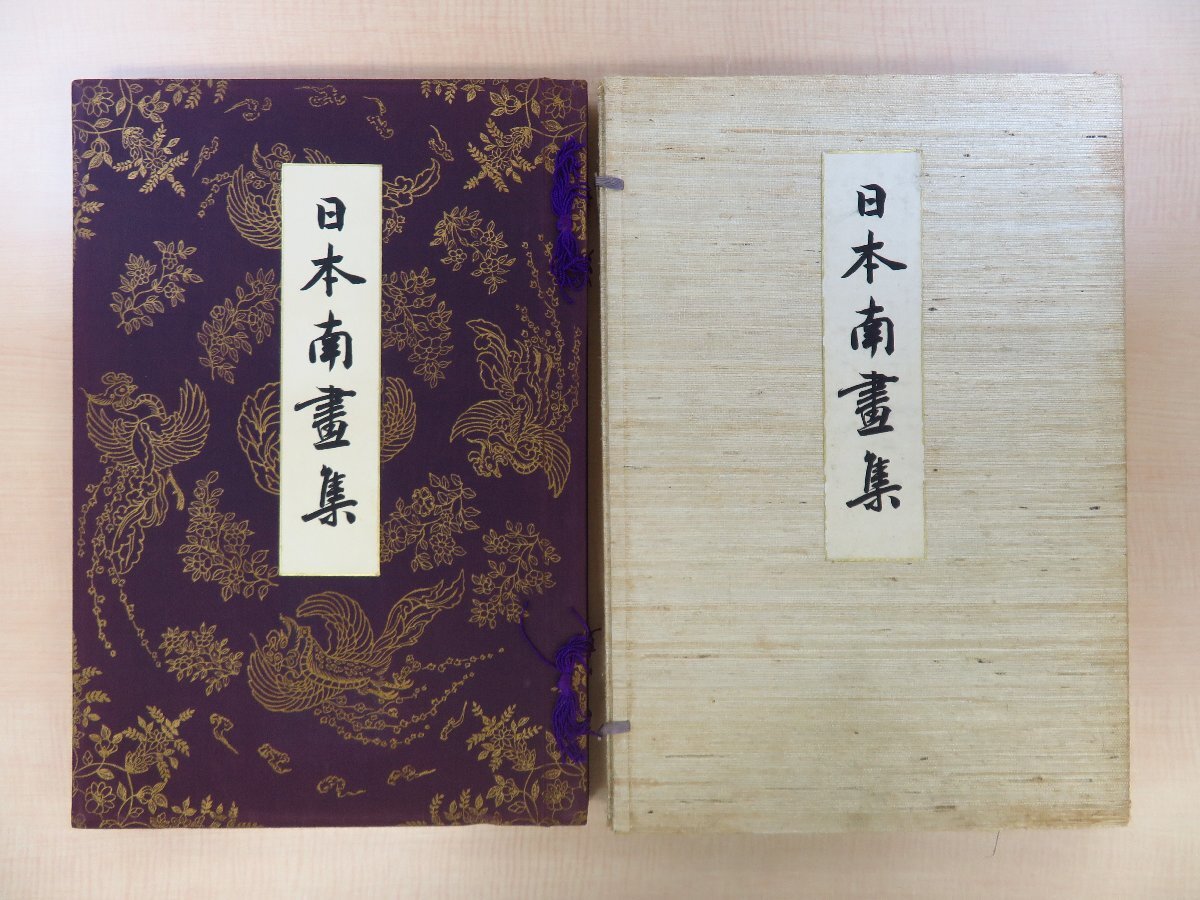 日本南畫集
日本南畫集